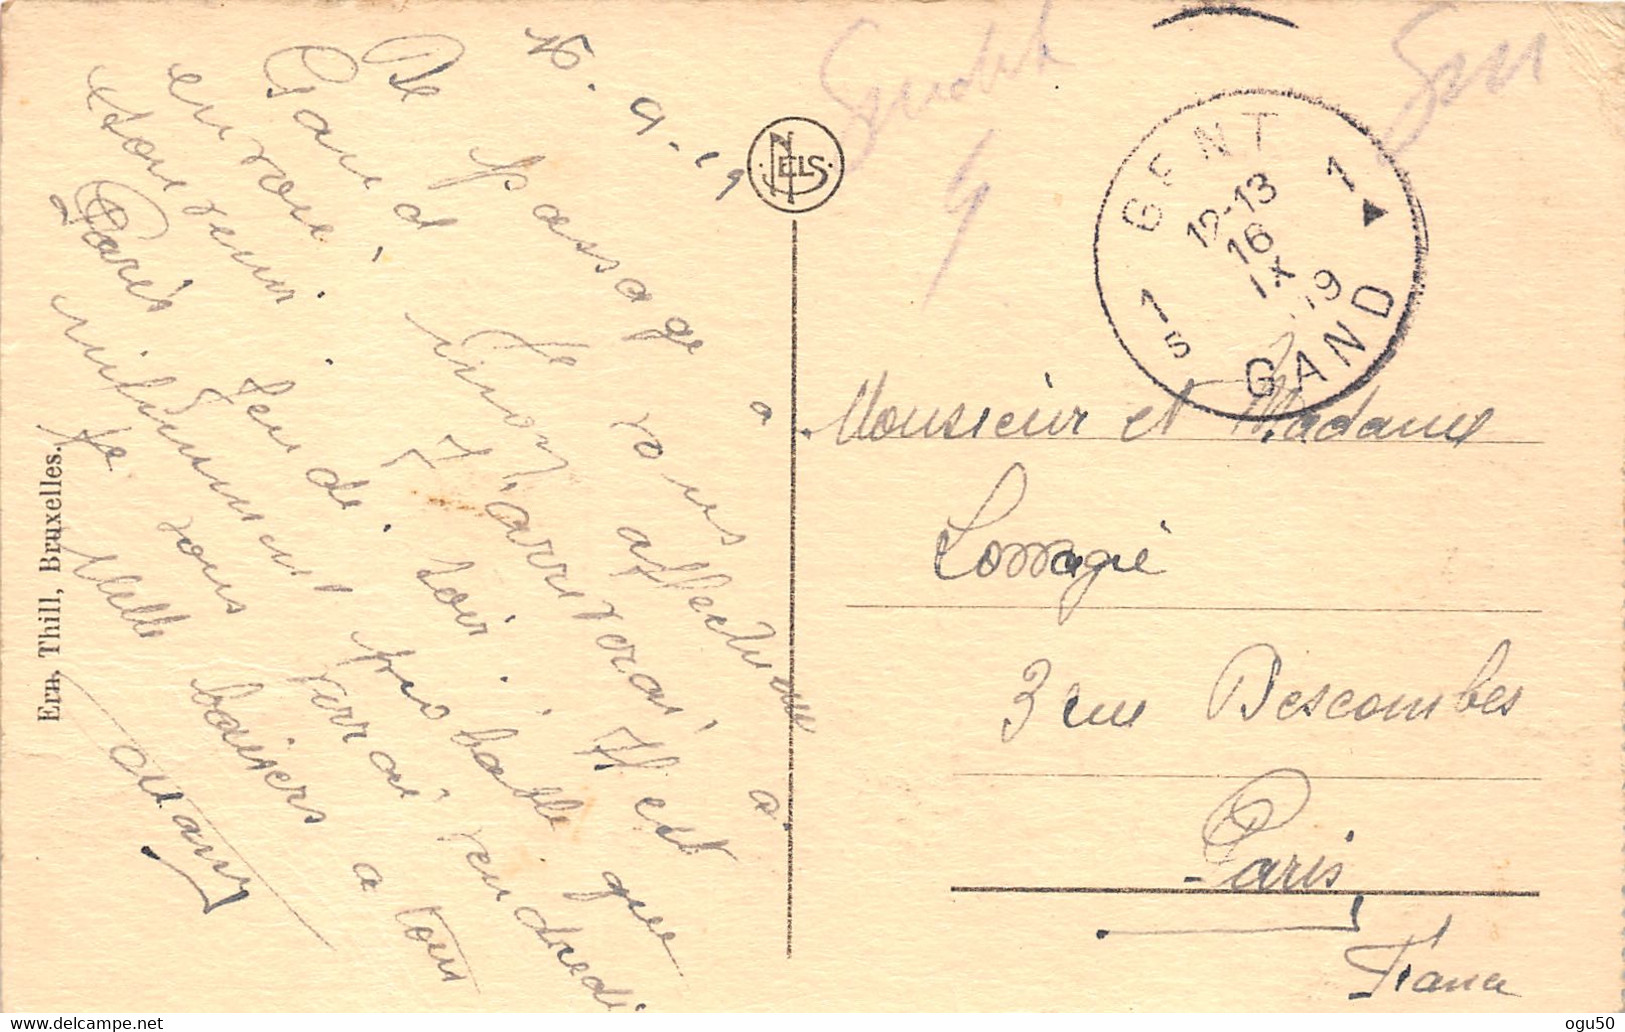 16.9.19
De passage à
Gand je vous
envoie, mon affectueux
souvenir. J'arriverai à
Paris jeudi soir. Il est
infiniment probable que
je vous verrai vendredi
Mille baisers a tous
Ern. Thill, Bruxelles.
NELS
GENT
1 1
12-13
16
IX
19
1 S
GAND
Monsieur et Madame
Lorragié
3 rue Descombes
Paris
France
ogu50